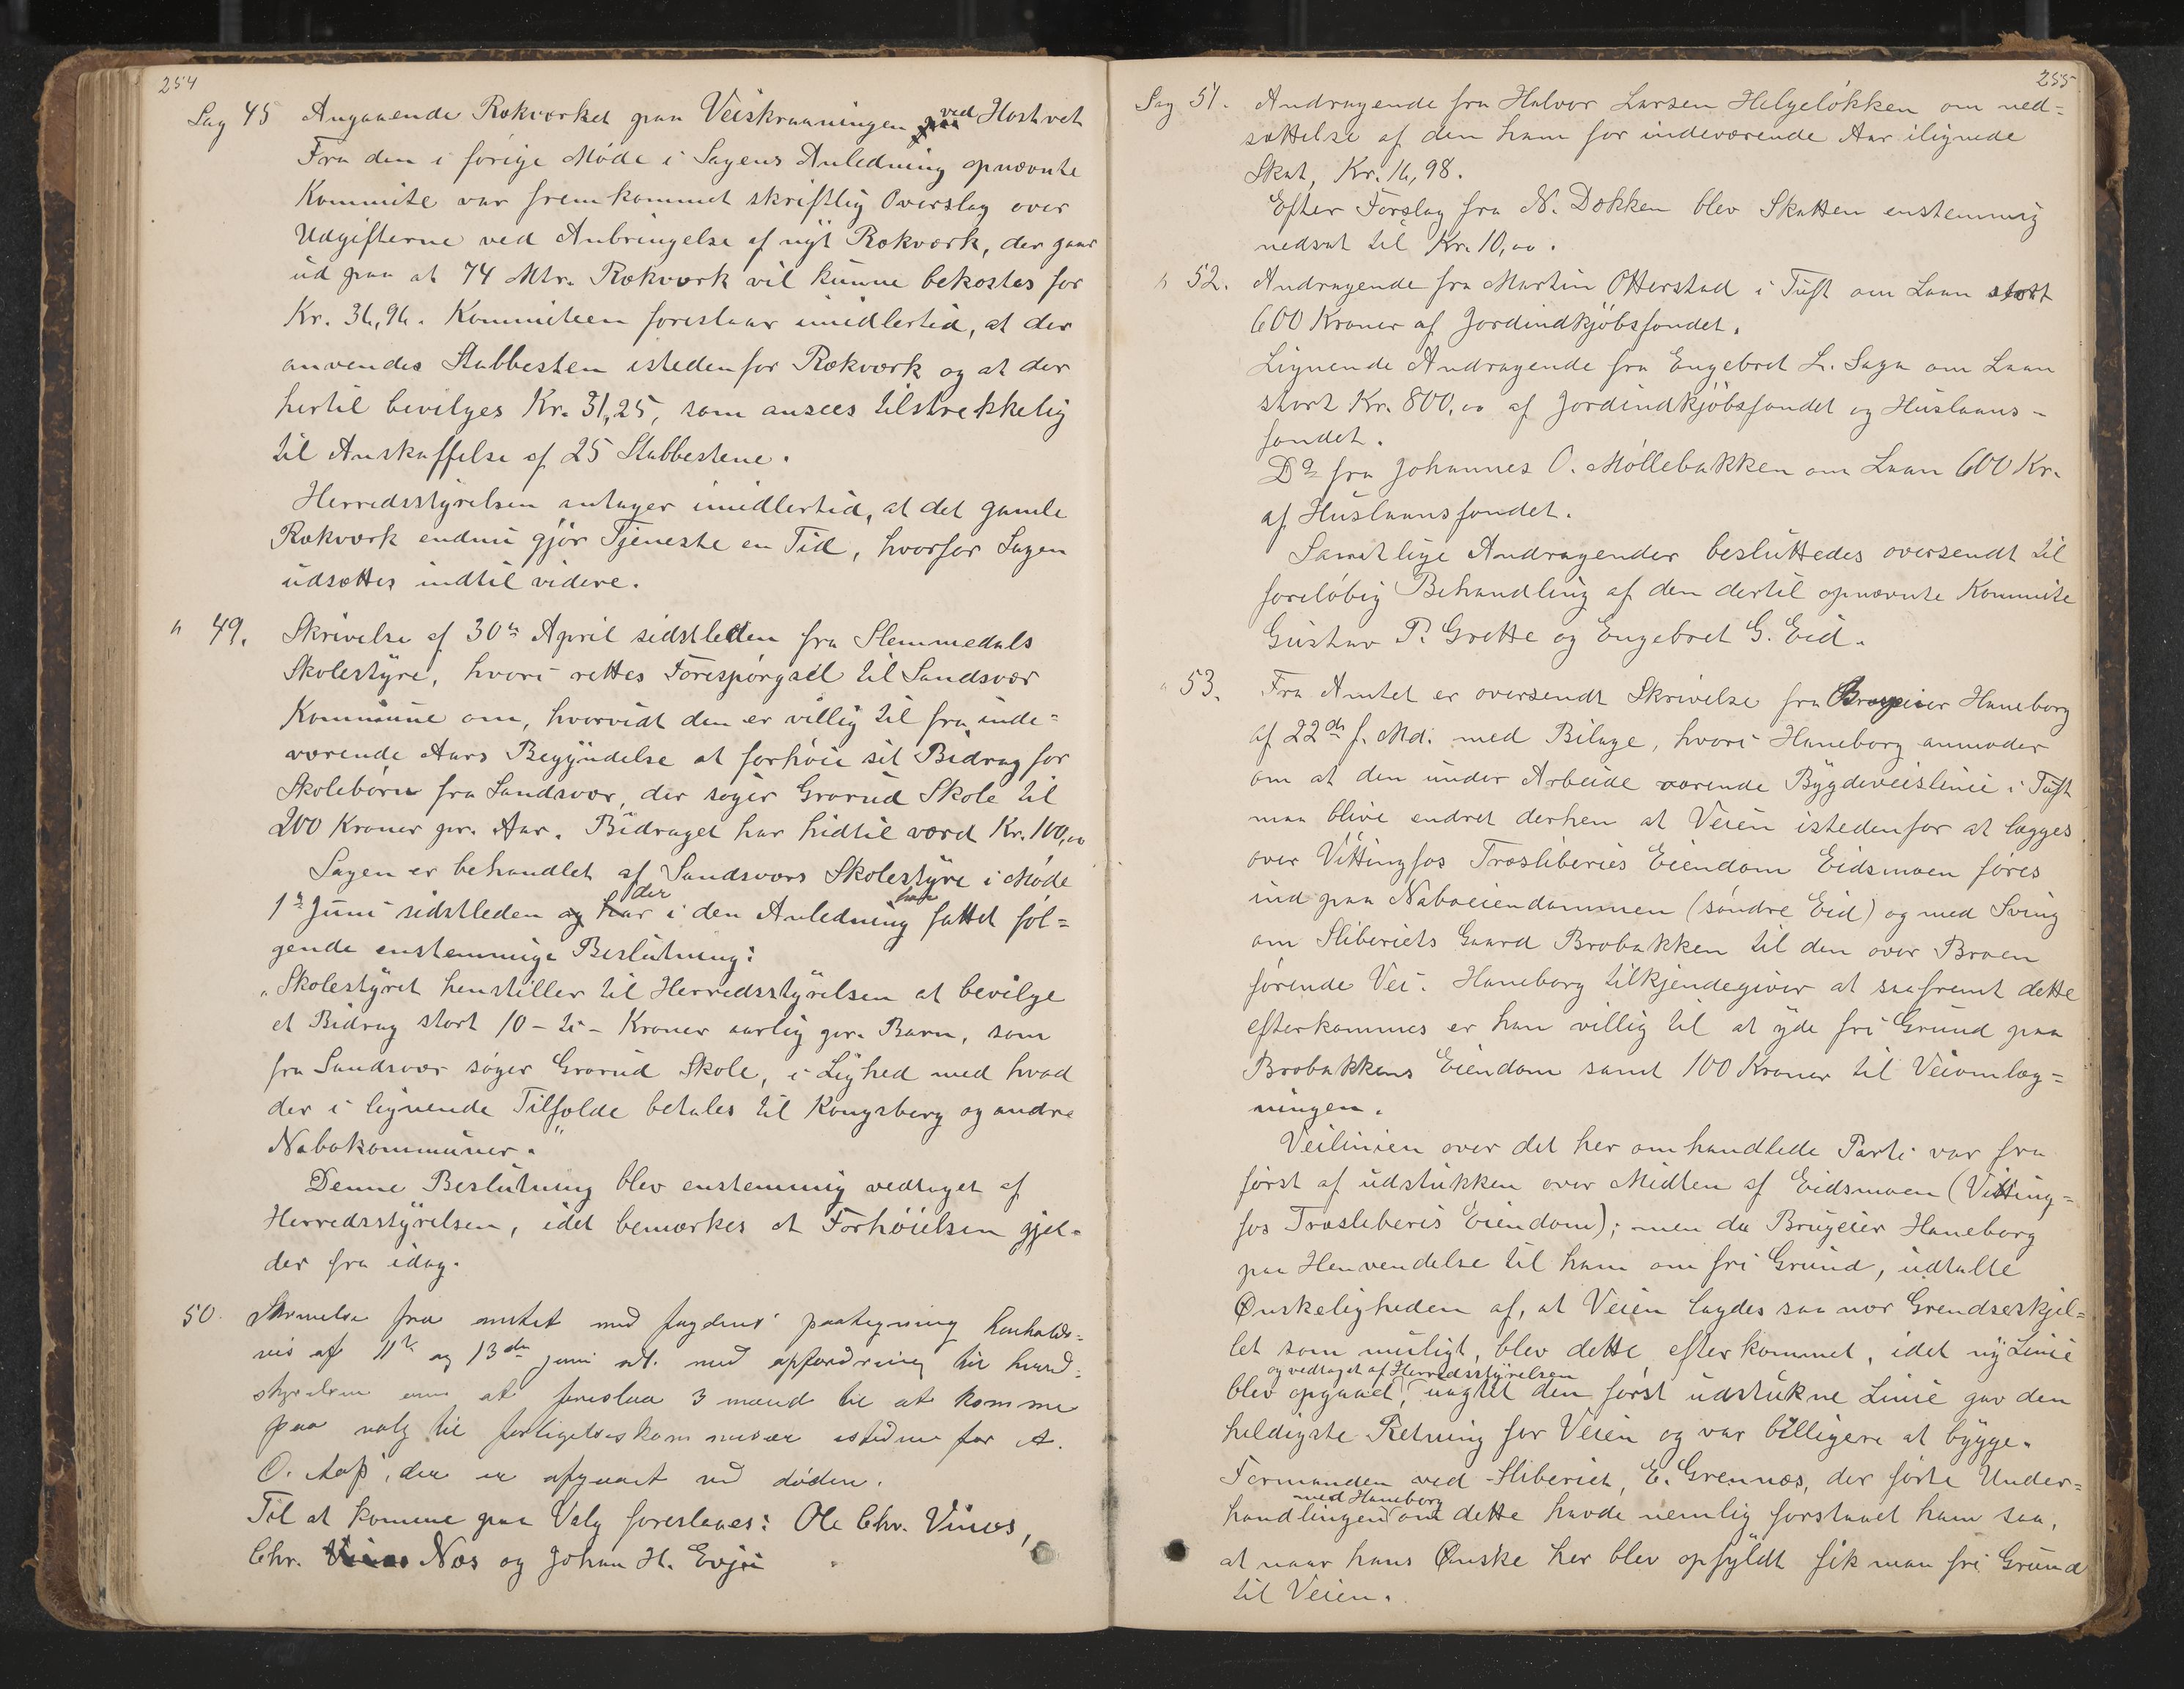 254
Sag 45 Angaaende Rækværket paa Veiskraaningen ved Hostvet
Fra den i forrige Møde i Sagens Anledning opnævnte
Kommite var fremkommet skriftlig Overslag over
Udgifterne ved Anbringelse af nyt Rækværk, der gaar
ud paa at 74 Mtr. Rækværk vil kunne bekostes for
Kr. 36,96. Kommiteen foreslaar imidlertid, at der
anvendes Stabbesten istedenfor Rækværk og at der
hertil bevilges Kr. 31,25, som ansees tilstrekkelig
til Anskaffelse af 25 Stabbestene.
Herredsstyrelsen antager imidlertid, at det gamle
Rækværk endnu gjør Tjeneste en Tid, hvorfor Sagen
udsættes indtil videre.
" 49. Skrivelse af 30te April sidstleden fra Slemmedals
Skolestyre, hvori rettes Forespørgsel til Sandsvær
Kommune om, hvorvidt den er villig til fra inde=
værende Aars Begyndelse at forhøie sit Bidrag for
Skolebørn fra Sandsvær, der søger Grorud Skole til
200 Kroner pr. Aar. Bidraget har hidtil været Kr. 100,00
Sagen er behandlet af Sandsværs Skolestyre i Møde
1ste Juni sidstleden der i den Anledning har fattet føl=
gende enstemmige Beslutning:
"Skolestyret henstiller til Herredsstyrelsen at bevilge
et Bidrag stort 10 - ti - Kroner aarlig pr. Barn, som
fra Sandsvær søger Grorud Skole, i Lighed med hvad
der i lignende Tilfælde betales til Kongsberg og andre
Nabokommuner."
Denne Beslutning blev enstemmig vedtaget af
Herredsstyrelsen, idet bemærkes at Forhøielsen gjel=
der fra idag.
50. Skrivelse fra amtet med fogdens paategning henholds=
vis af 11te og 13de juni med opfordring til herred=
styrelsen om at foreslaa 3 mænd til at komme
paa valg til forligelseskommisær istedenfor A.
O. Aas, der er afgaaet ved døden.
Til at komme paa Valg foreslaaes: Ole Chr. Vinæs,
Chr. Næs og Johan H. Evju
255
Sag 51. Andragende fra Halvor Larsen Helgeløkken om ned=
sættelse af den ham for indeværende Aar ilignede
Skat, Kr. 16,98.
Efter Forslag fra N. Dokken blev Skatten enstemmig
nedsat til Kr. 10,00.
" 52. Andragende fra Martin Otterstad i Tuft om Laan stort
600 Kroner af Jordindkjøbsfondet.
Lignende Andragende fra Engebret L. Saga om Laan
stort Kr. 800,00 af Jordindkjøbsfondet og Huslaans-
fondet.
Do fra Johannes O. Møllebakken om Laan 600 Kr.
af Huslaansfondet.
Samtlige Andragender besluttedes oversendt til
foreløbig Behandling af den dertil opnævnte Kommite
Gustav P. Grette og Engebret G. Eid.
" 53. Fra Amtet er oversendt Skrivelse fra Brugeier Haneborg
af 22de f. Md. med Bilage, hvori Haneborg anmoder
om at den under Arbeide værende Bygdeveislinie i Tuft
maa blive endret derhen at Veien istedenfor at lægges
over Vittingfos Træsliberies Eiendom Eidsmoen føres
ind paa Naboeiendommen (søndre Eid) og med Sving
om Sliberiets Gaard Brobakken til den over Broen
førende Vei. Haneborg tilkjendegiver at saafremt dette
efterkommes er han villig til at yde fri Grund paa
Brobakkens Eiendom samt 100 Kroner til Veiomlæg=
ningen.
Veilinien over det her omhandlede Parti var fra
først af udstukken over Midten af Eidsmoen (Vitting=
fos Træsliberis Eiendom); men da Brugeier Haneborg
paa Henvendelse til ham om fri Grund, udtalte
Ønskeligheden af, at Veien lagdes saa nær Grendseskjel=
let som muligt, blev dette efterkommet, idet ny Linie
og vedtaget af Herredsstyrelsen
blev opgaaet, uagtet den først udstukne Linie gav den
heldigste Retning for Veien og var billigere at bygge.
Formanden ved Sliberiet, E. Grennæs, der førte Under=
med Haneborg
handlingen om dette havde nemlig forstaaet ham saa,
at naar hans Ønske her blev opfyldt fik man fri Grund
til Veien.